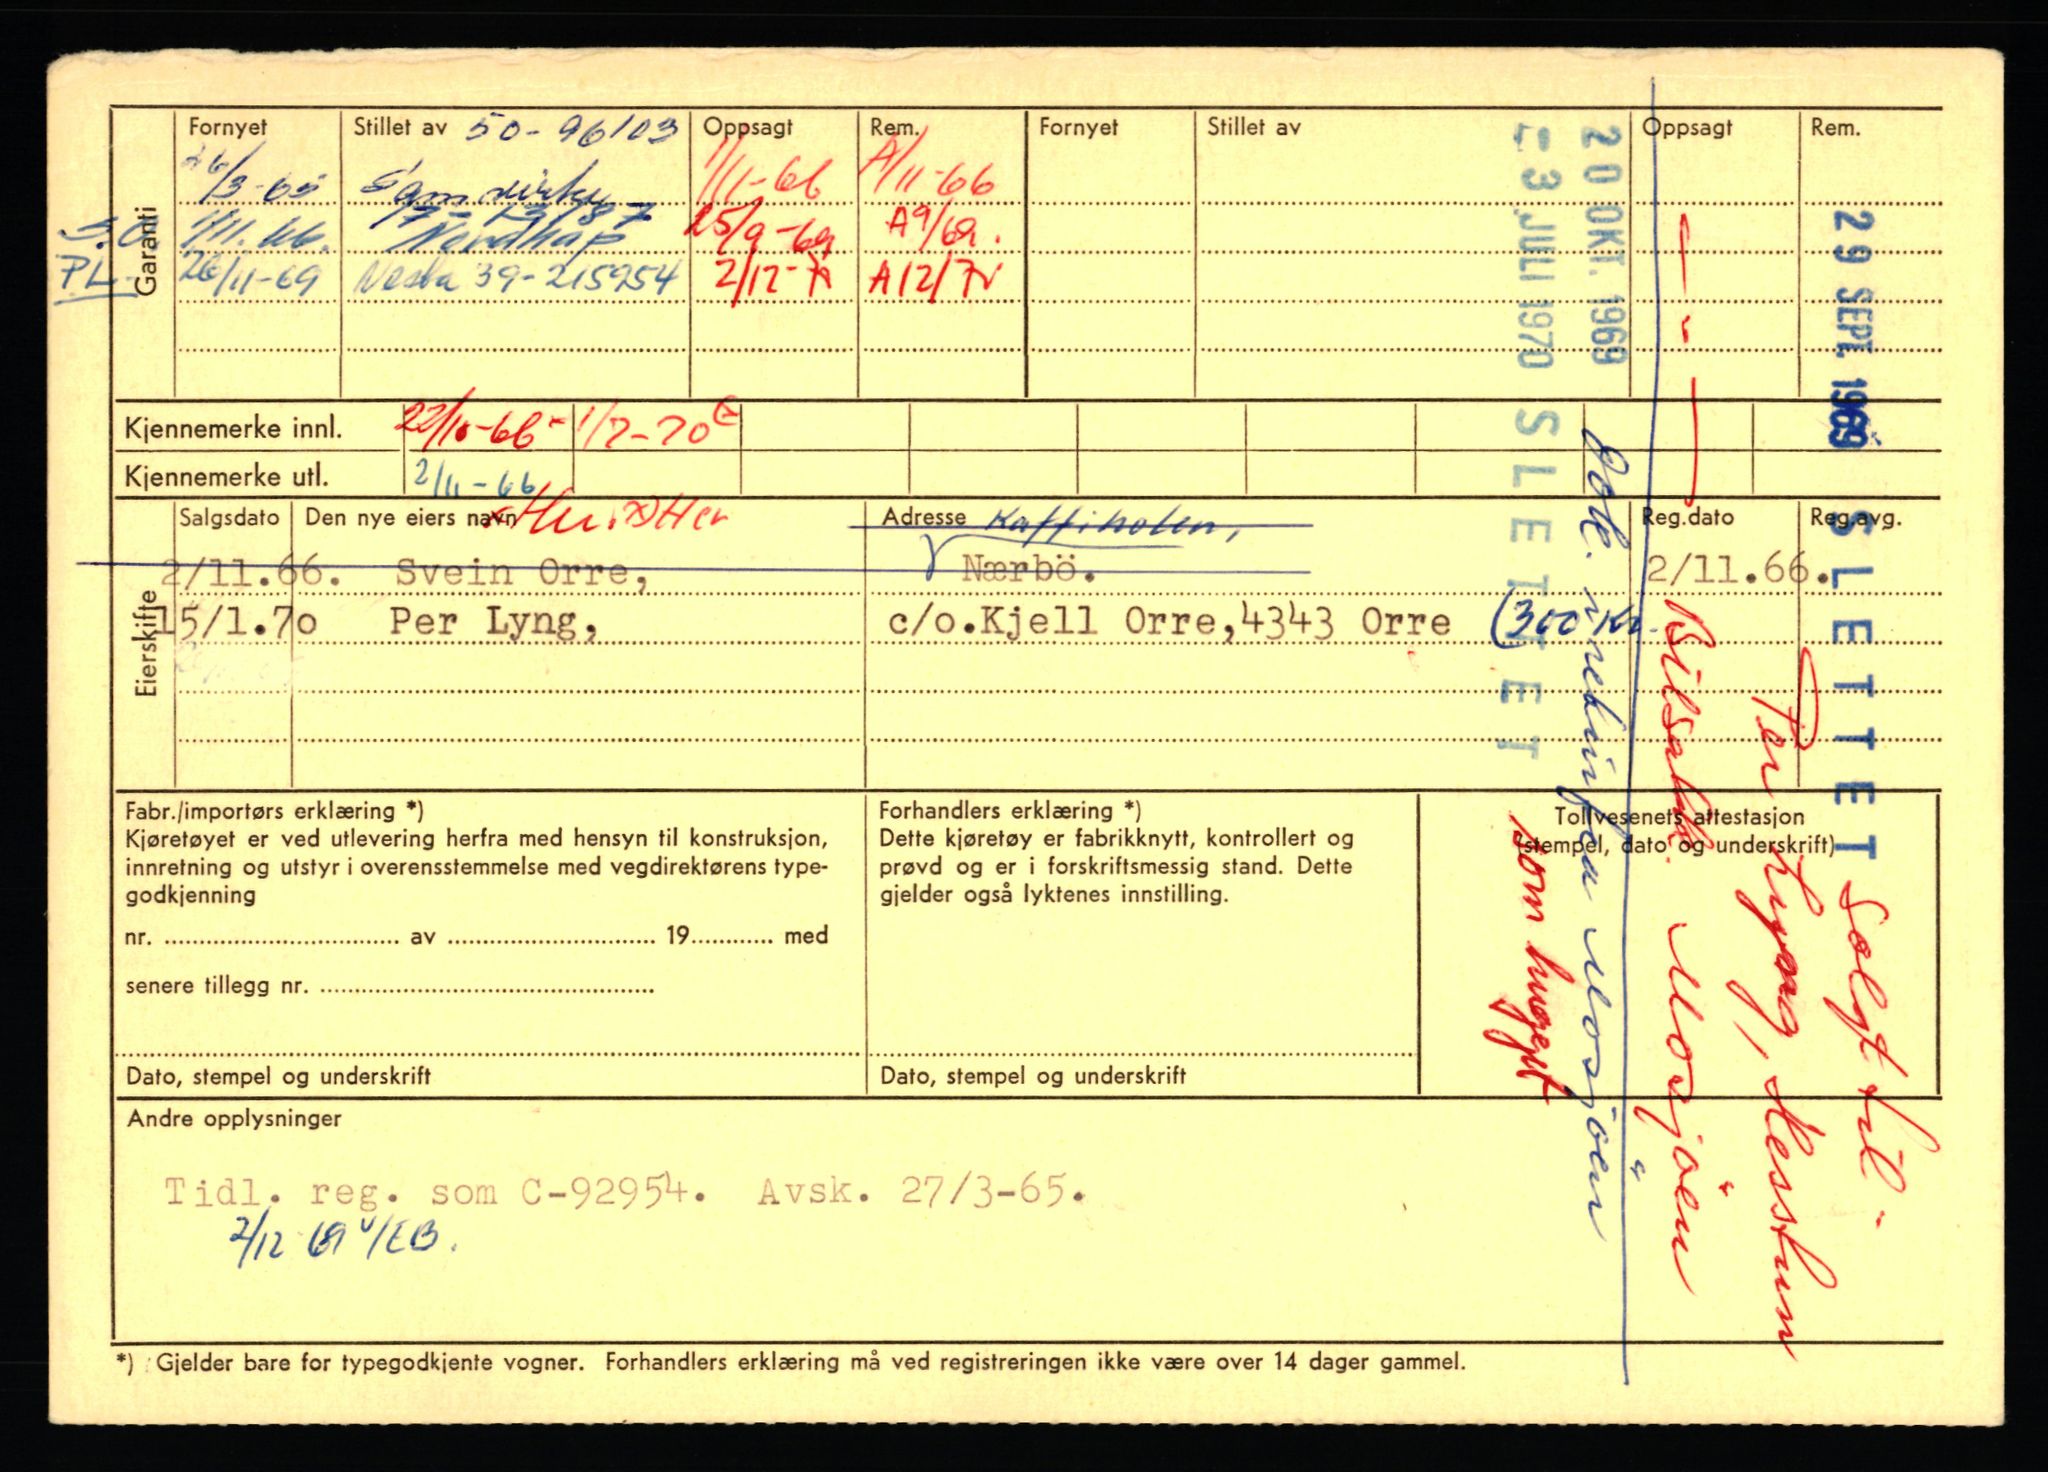 Garanti
Fornyet Stillet av 50-96103 Oppsagt Rem. Fornyet Stillet av Oppsagt Rem.
26/3-65 Samvirke 1/11-66 A/11-66
S.O. 1/11.66. Nordkap 25/9-69 A9/69.
PL 26/11-69 Neska 39-215954 2/12-70 A12/70
Kjennemerke innl. 22/10-66- 1/7-70
Kjennemerke utl. 2/11-66
Eierskifte
Salgsdato Den nye eiers navn Adresse Kaffiholen, Reg.dato Reg.avg.
2/11.66. Svein Orre, Nærbö. 2/11.66.
15/1.70 Per Lyng, c/o.Kjell Orre,4343 Orre (300 Kr.
Fabr./importørs erklæring *)
Kjøretøyet er ved utlevering herfra med hensyn til konstruksjon,
innretning og utstyr i overensstemmelse med vegdirektørens type-
godkjenning
nr. .......... av .......... 19.......... med
senere tillegg nr. ..........
Dato, stempel og underskrift
Forhandlers erklæring *)
Dette kjøretøy er fabrikknytt, kontrollert og
prøvd og er i forskriftsmessig stand. Dette
gjelder også lyktenes innstilling.
Dato, stempel og underskrift
Tollvesenets attestasjon
(stempel, dato og underskrift)
Andre opplysninger
Tidl. reg. som C-92954. Avsk. 27/3-65.
2/12 69 v/EB.
*) Gjelder bare for typegodkjente vogner. Forhandlers erklæring må ved registreringen ikke være over 14 dager gammel.
29 SEPT. 1969 SLETTET
Solgt til
Per Lyng,
Bilsakk. Mosjöen
20 OKT. 1969
Mosjöen
-3 JULI 1970 SLETTET
som hugget